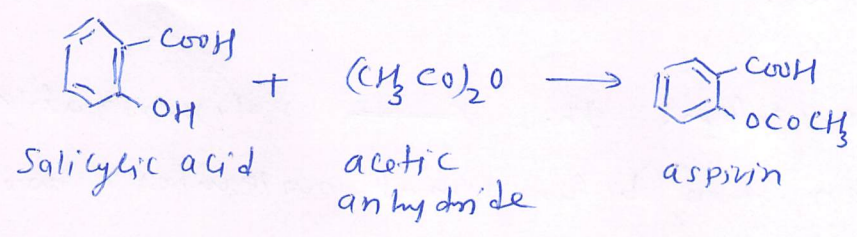 COOH
OH
+ (CH3CO)2O →
COOH
OCOCH3
Salicylic acid
acetic
anhydride
aspirin